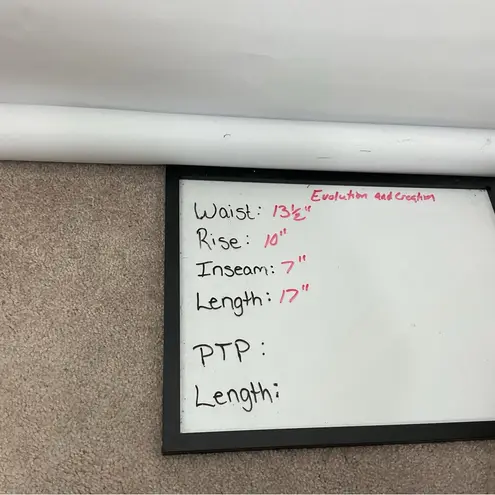 Evolution and Creation
Waist: 13½"
Rise: 10"
Inseam: 7"
Length: 17"
PTP:
Length: